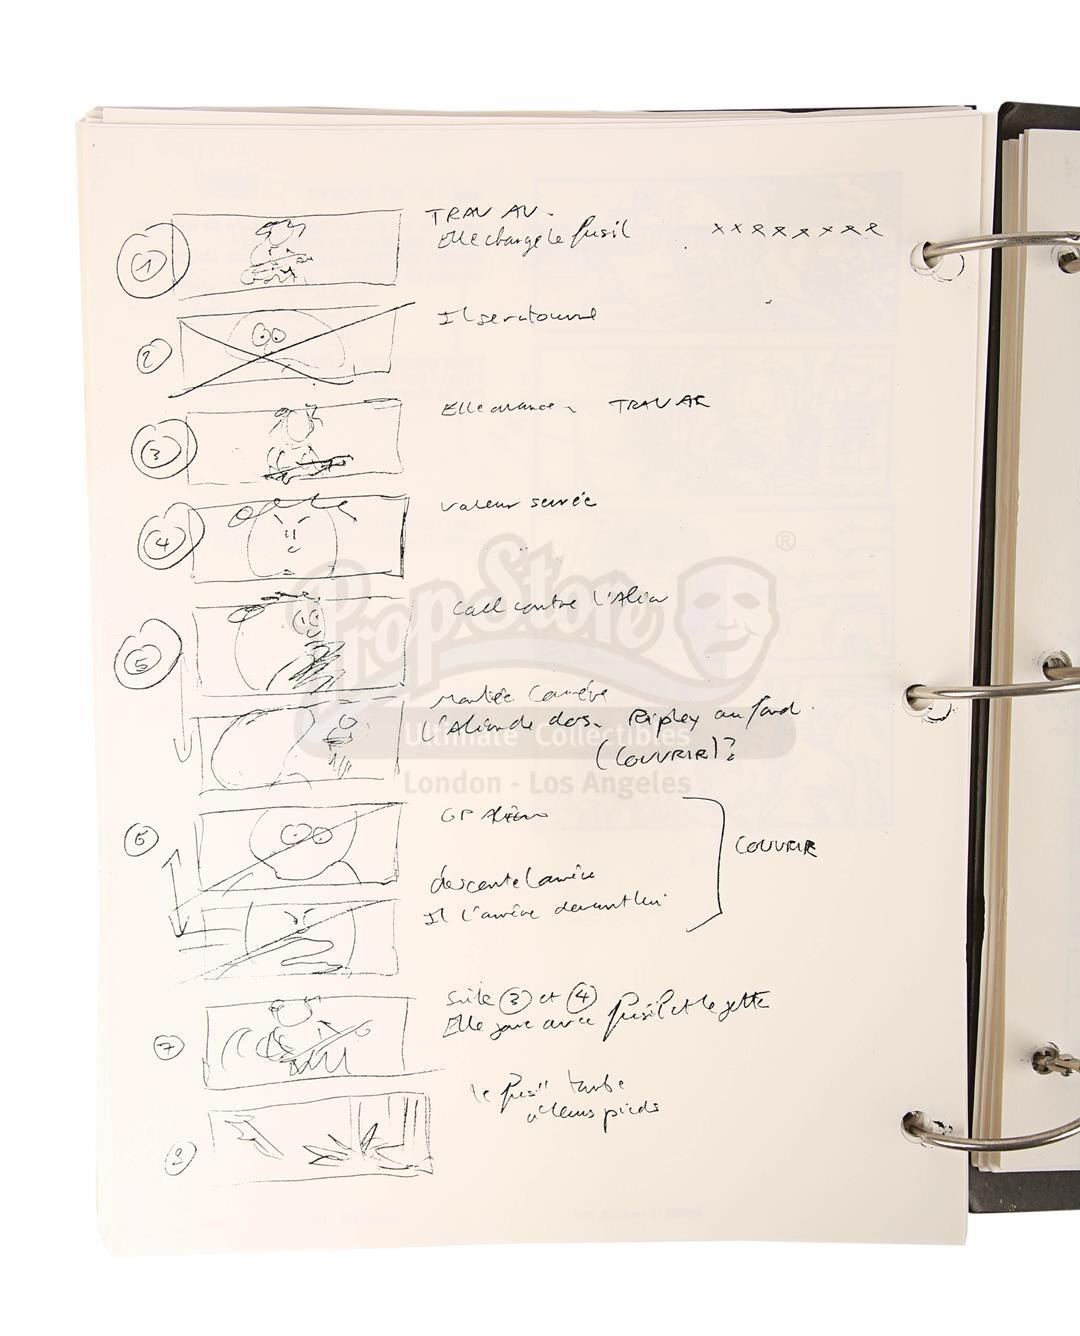 1
TRAV AV.
Elle charge le fusil
x x x x x x x x
2
Il se retourne
3
Elle avance. TRAV AR
4
valeur serrée
5
Call contre l'Alien
montée caméra
l'Alien de dos. Ripley au fond.
(COUVRIR)?
6
GP Alien
COUVRIR
descente caméra
Il l'amène devant lui
7
suite 3 et 4
Elle joue avec fusil et le jette
8
le fusil tombe
à leurs pieds
PropStore
®
Ultimate Collectibles
London - Los Angeles